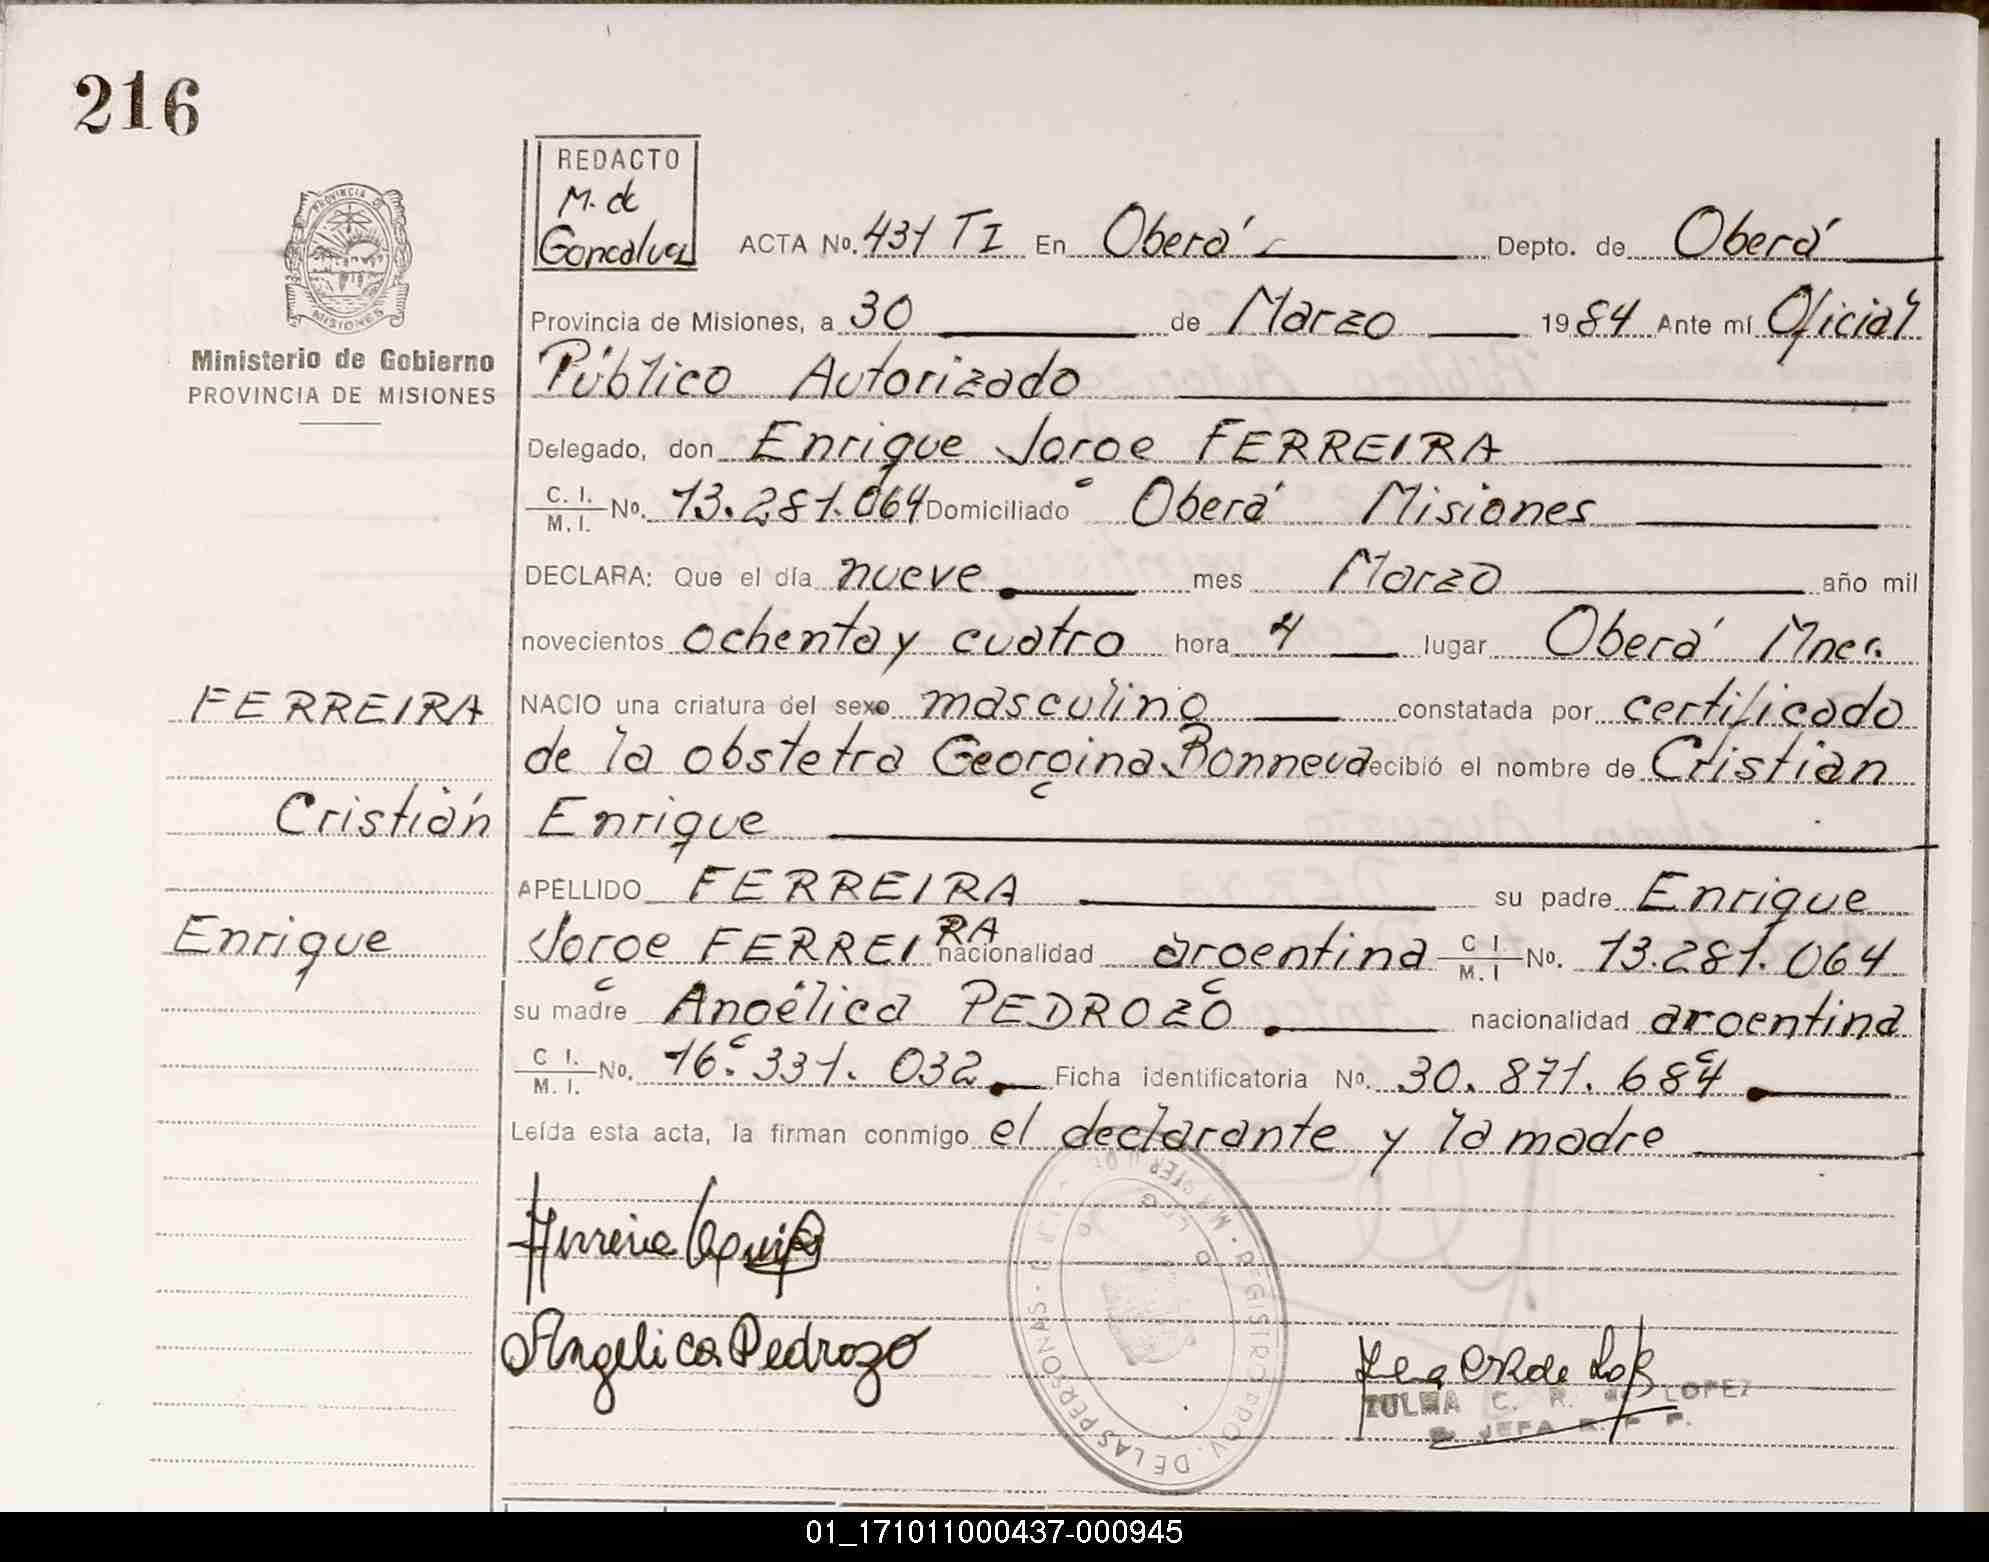 216
REDACTO
M. de
Goncalvez
PROVINCIA DE
MISIONES
Ministerio de Gobierno
PROVINCIA DE MISIONES
ACTA No. 431 TI En Oberá Depto. de Oberá
Provincia de Misiones, a 30 de Marzo 1984 Ante mí Oficial
Público Autorizado
Delegado, don Enrique Jorge FERREIRA
C. I. / M. I. No. 13.281.064 Domiciliado Oberá Misiones
DECLARA: Que el día nueve mes Marzo año mil
novecientos ochenta y cuatro hora 4 lugar Oberá Mnes.
FERREIRA
NACIO una criatura del sexo masculino constatada por certificado
de la obstetra Georgina Bonneva recibió el nombre de Cristian
Cristián
Enrique
APELLIDO FERREIRA su padre Enrique
Enrique
Jorge FERREIRA nacionalidad argentina C I. / M. I No. 13.281.064
su madre Angélica PEDROZO nacionalidad argentina
C I. / M. I. No. 16.331.032 Ficha identificatoria No. 30.871.684
Leída esta acta, la firman conmigo el declarante y la madre
Angelica Pedrozo
REGISTRO PROV. DE LAS PERSONAS
ZULMA C. R. de LOPEZ
JEFA
01_171011000437-000945